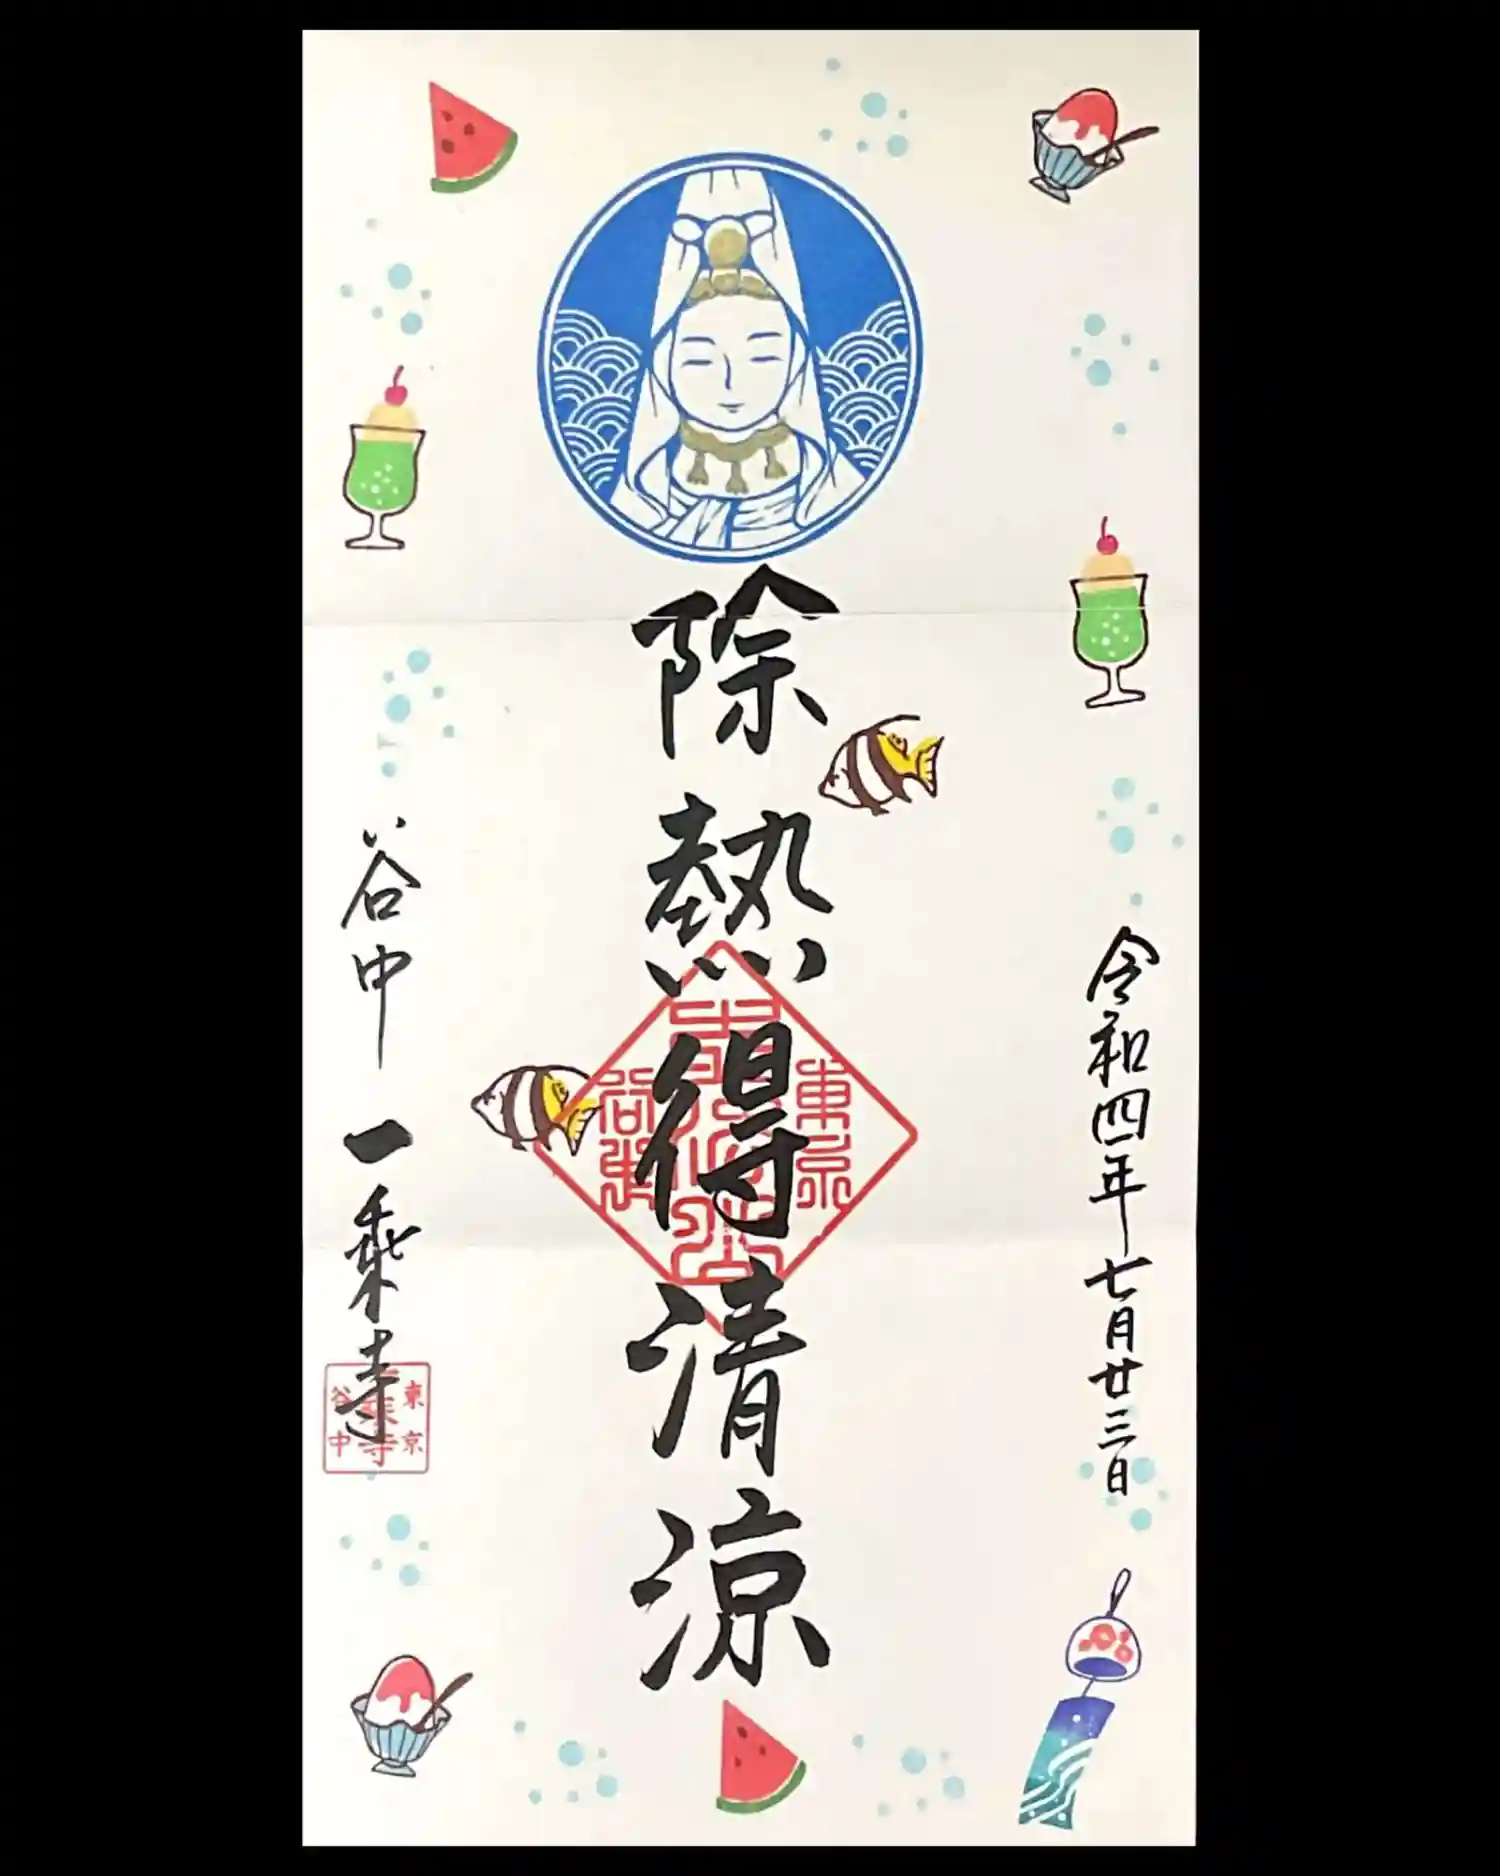 令和四年七月廿三日
除熱得清涼
谷中 一乗寺
東京
谷中
東京
一乗寺
谷中